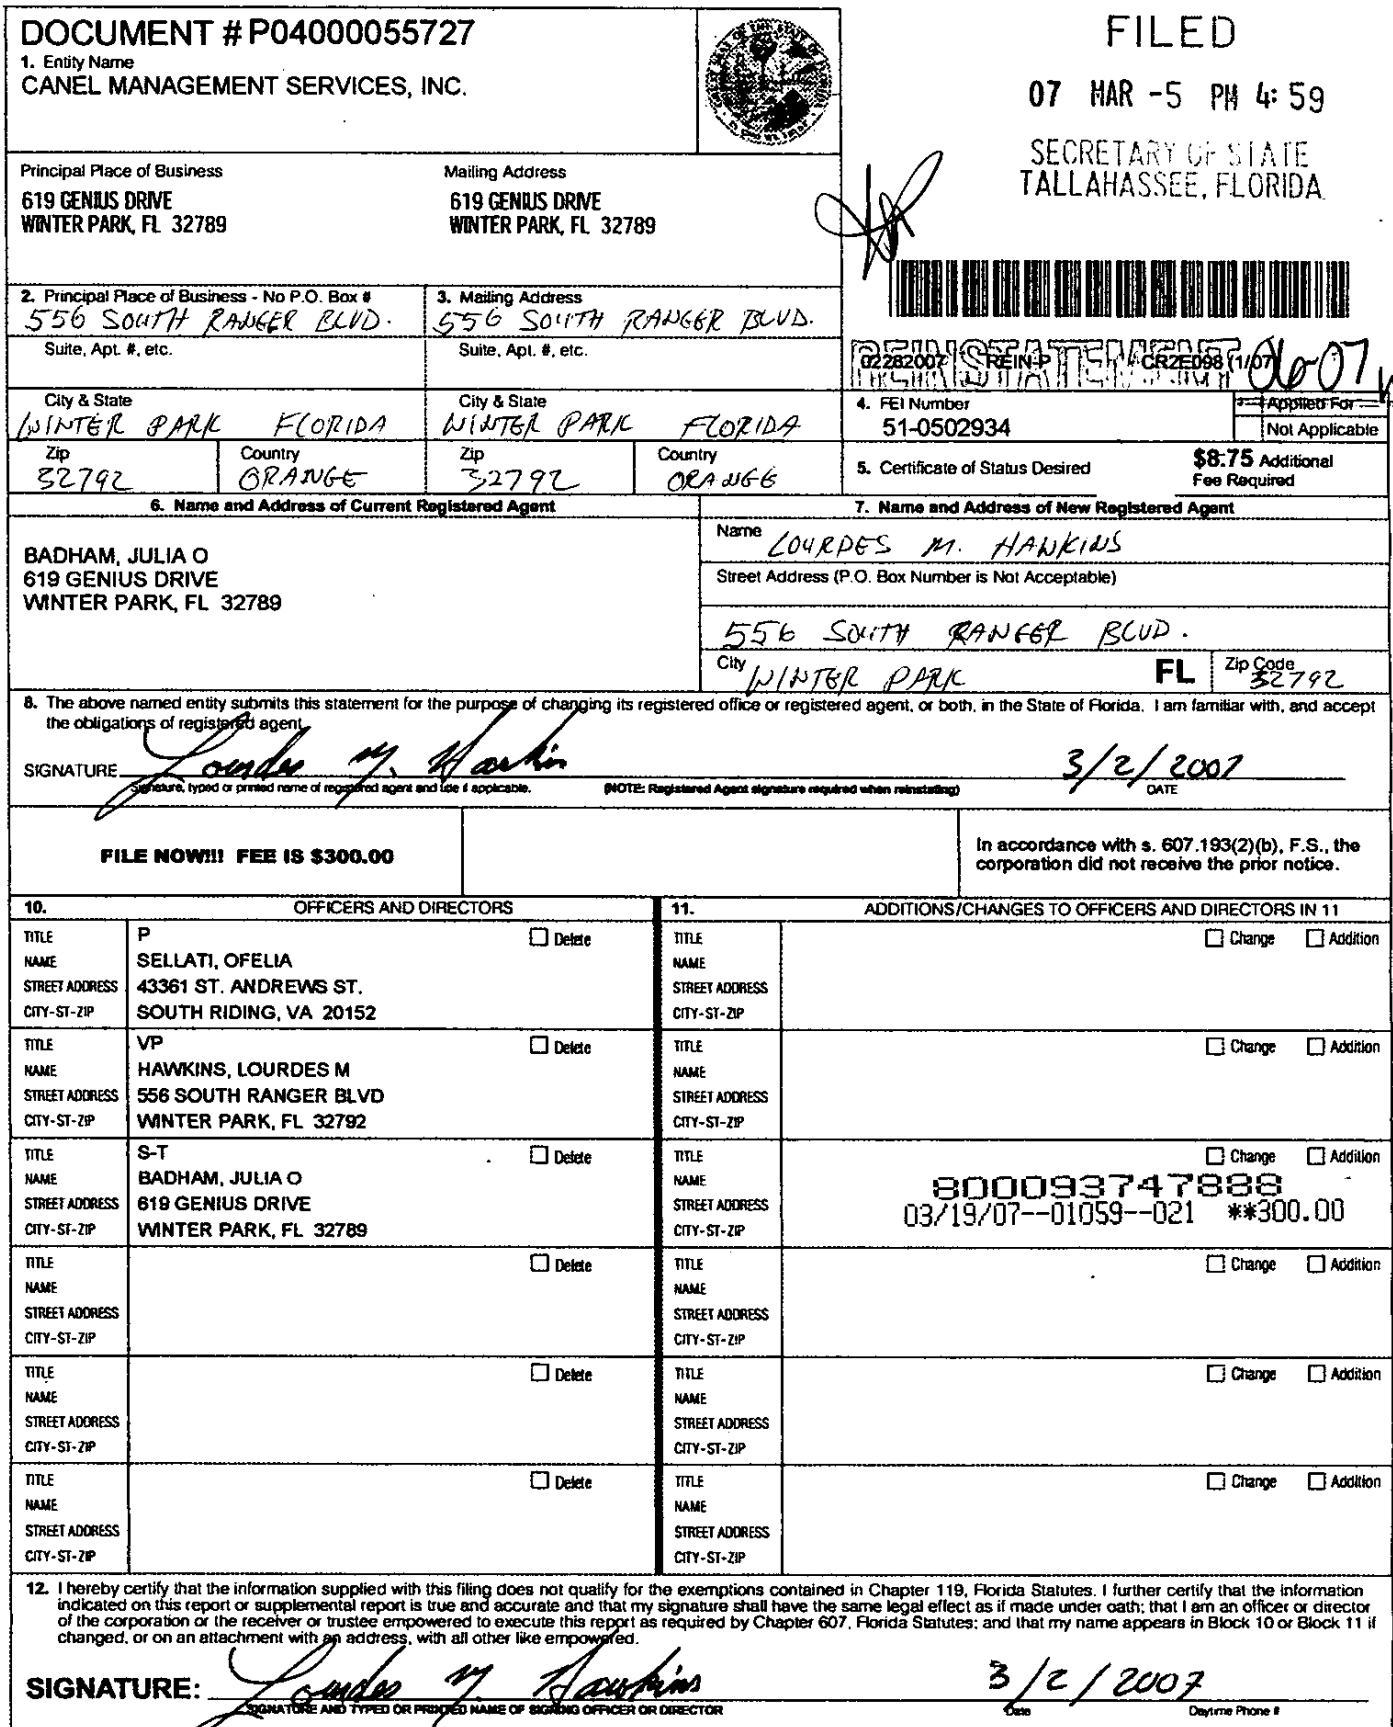 DOCUMENT # P04000055727
1. Entity Name
CANEL MANAGEMENT SERVICES, INC.
FILED
07 MAR -5 PM 4:59
SECRETARY OF STATE
TALLAHASSEE, FLORIDA
Principal Place of Business
619 GENIUS DRIVE
WINTER PARK, FL 32789
Mailing Address
619 GENIUS DRIVE
WINTER PARK, FL 32789
2. Principal Place of Business - No P.O. Box #
556 SOUTH RANGER BLVD.
3. Mailing Address
556 SOUTH RANGER BLVD.
Suite, Apt. #, etc.
Suite, Apt. #, etc.
REINSTATEMENT 06-07
02282007 REIN-P CR2E098 (1/07)
City & State
WINTER PARK FLORIDA
City & State
WINTER PARK FLORIDA
4. FEI Number
51-0502934
Applied For
Not Applicable
Zip
32792
Country
ORANGE
Zip
32792
Country
ORANGE
5. Certificate of Status Desired
$8.75 Additional
Fee Required
6. Name and Address of Current Registered Agent
BADHAM, JULIA O
619 GENIUS DRIVE
WINTER PARK, FL 32789
7. Name and Address of New Registered Agent
Name LOURDES M. HAWKINS
Street Address (P.O. Box Number is Not Acceptable)
556 SOUTH RANGER BLVD.
City WINTER PARK FL Zip Code 32792
8. The above named entity submits this statement for the purpose of changing its registered office or registered agent, or both, in the State of Florida. I am familiar with, and accept
the obligations of registered agent.
SIGNATURE Lourdes M. Hawkins 3/2/2007
Signature, typed or printed name of registered agent and title if applicable. (NOTE: Registered Agent signature required when reinstating) DATE
FILE NOW!!! FEE IS $300.00
In accordance with s. 607.193(2)(b), F.S., the
corporation did not receive the prior notice.
10. OFFICERS AND DIRECTORS
TITLE P Delete
NAME SELLATI, OFELIA
STREET ADDRESS 43361 ST. ANDREWS ST.
CITY-ST-ZIP SOUTH RIDING, VA 20152
TITLE VP Delete
NAME HAWKINS, LOURDES M
STREET ADDRESS 556 SOUTH RANGER BLVD
CITY-ST-ZIP WINTER PARK, FL 32792
TITLE S-T Delete
NAME BADHAM, JULIA O
STREET ADDRESS 619 GENIUS DRIVE
CITY-ST-ZIP WINTER PARK, FL 32789
TITLE Delete
NAME
STREET ADDRESS
CITY-ST-ZIP
TITLE Delete
NAME
STREET ADDRESS
CITY-ST-ZIP
TITLE Delete
NAME
STREET ADDRESS
CITY-ST-ZIP
11. ADDITIONS/CHANGES TO OFFICERS AND DIRECTORS IN 11
TITLE Change Addition
NAME
STREET ADDRESS
CITY-ST-ZIP
TITLE Change Addition
NAME
STREET ADDRESS
CITY-ST-ZIP
TITLE Change Addition
NAME 800093747888
STREET ADDRESS 03/19/07--01059--021 **300.00
CITY-ST-ZIP
TITLE Change Addition
NAME
STREET ADDRESS
CITY-ST-ZIP
TITLE Change Addition
NAME
STREET ADDRESS
CITY-ST-ZIP
TITLE Change Addition
NAME
STREET ADDRESS
CITY-ST-ZIP
12. I hereby certify that the information supplied with this filing does not qualify for the exemptions contained in Chapter 119, Florida Statutes. I further certify that the information
indicated on this report or supplemental report is true and accurate and that my signature shall have the same legal effect as if made under oath; that I am an officer or director
of the corporation or the receiver or trustee empowered to execute this report as required by Chapter 607, Florida Statutes; and that my name appears in Block 10 or Block 11 if
changed, or on an attachment with an address, with all other like empowered.
SIGNATURE: Lourdes M. Hawkins 3/2/2007
SIGNATURE AND TYPED OR PRINTED NAME OF SIGNING OFFICER OR DIRECTOR Date Daytime Phone #